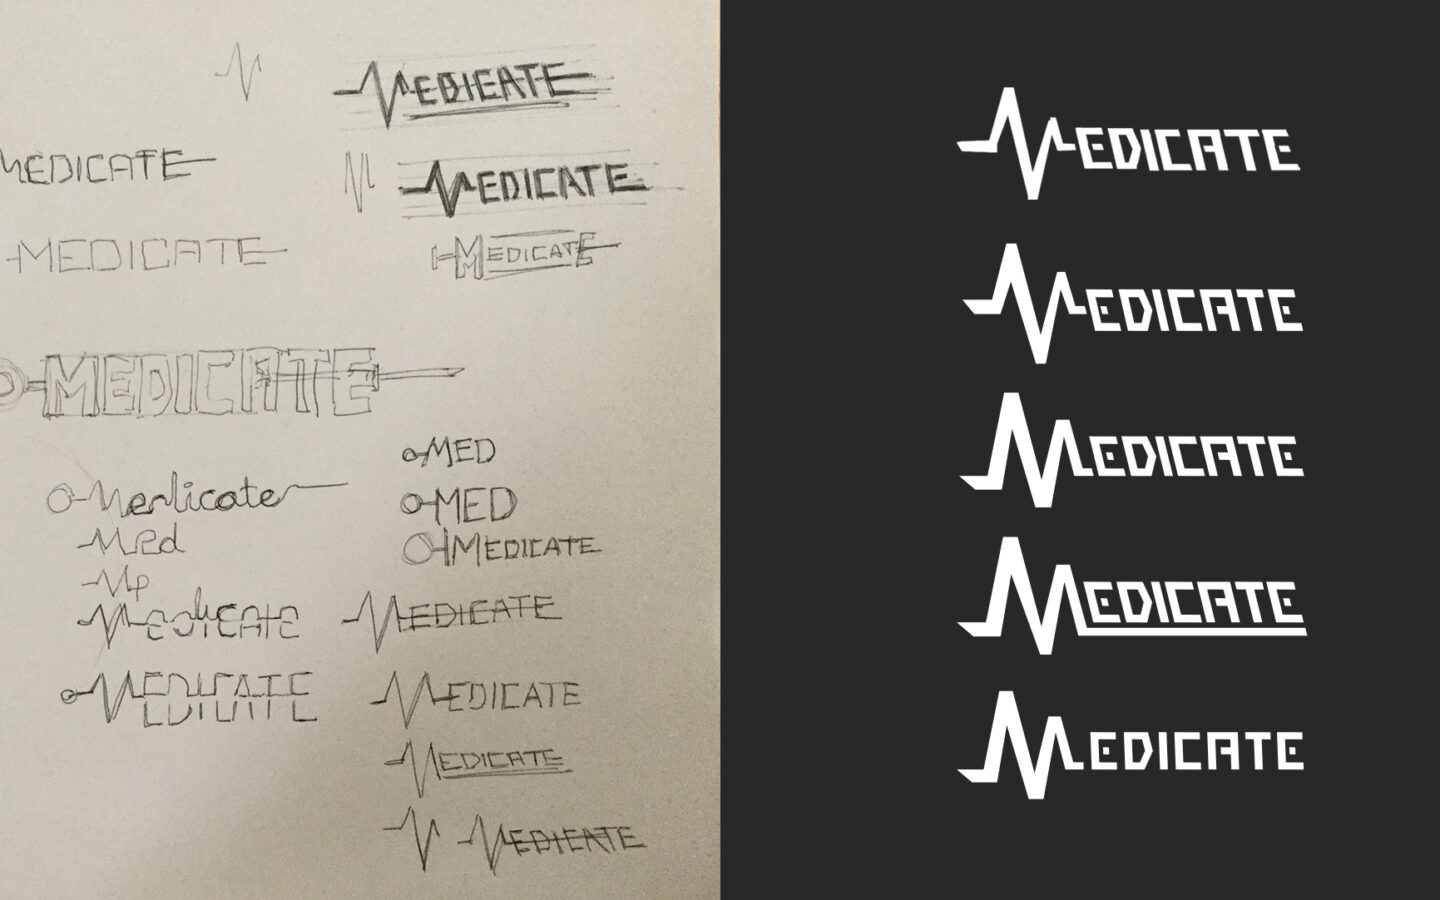 MEDICATE
MEDICATE
MEDICATE
MEDICATE
MEDICATE
MEDICATE
MED
Medicate
MED
Med
MEDICATE
MEDICATE
Medicate
MEDICATE
MEDICATE
MEDICATE
MEDICATE
MEDICATE
MEDICATE
MEDICATE
MEDICATE
MEDICATE